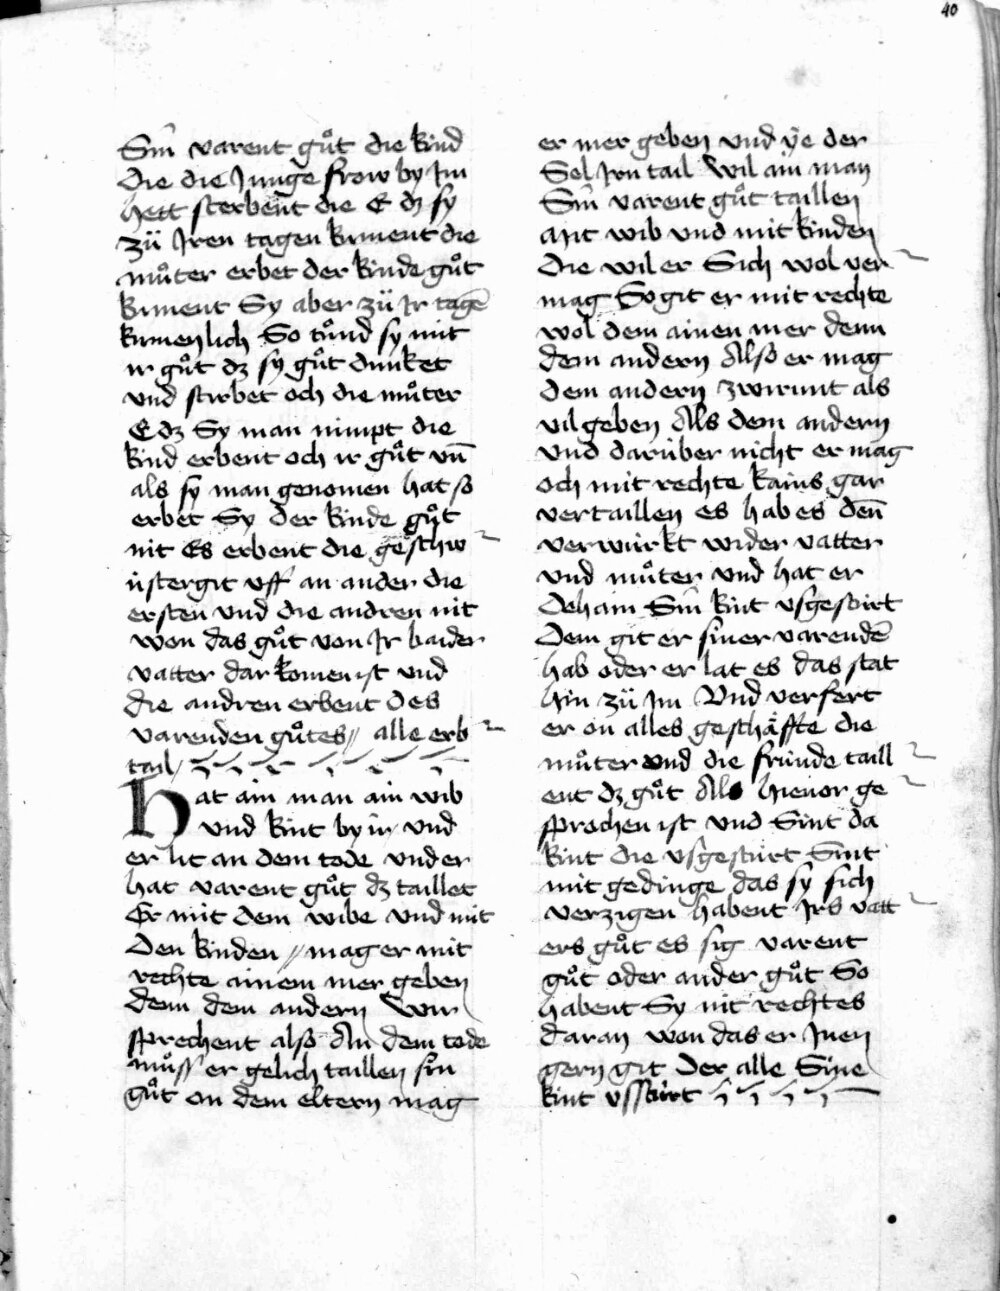 40
Sin̄ varent gůt die kind
die die Junge frow by Jm
hett sterbent die E dz sy
zü Jren tagen kument die
můter erbet der kinde gůt
kument Sy aber zü Jr tagē
kumenlich So tůnd sy mit
ir gůt dz sy gůt dunket
vnd stirbet och die můter
E dz Sy man nimpt die
kind erbent och ir gůt vn̄
als sy man genomen hat so
erbet Sy der kinde gůt
nit Es erbent die geschw
üstergit vff an ander die
ersten vnd die andren nit
won das gůt von Jr baider
vatter dar komen ist vnd
die andren erbent des
varenden gůtes // alle erb
tail
Hat ain man ain wib
vnd kint by ir / vnd
er lit an dem tode vnd er
hat varent gůt dz taillet
Er mit dem wibe vnd mit
den kinden // mag er mit
rechte ainem mer geben
denn dem andern Wir
sprechent also An dem tode
můss er gelich taillen sin
gůt on dem eltern mag
er mer geben vnd ye der
Sol Jrn tail Wil ain man
Sin̄ varent gůt taillen
Mit wib vnd mit kinden
die wil er Sich wol ver
mag So git er mit rechte
wol dem ainen mer denn
dem andern Also er mag
dem andern zwirunt als
vil geben Als dem andern
vnd darüber nicht er mag
och mit rechte kains gar
vertaillen es hab es den̄
verwürkt wider vatter
vnd můter vnd hat er
dehain Sin̄ kint vsgestirt
dem git er siner varendē
hab oder er lat es das stat
hin zü Jm Vnd verfert
er on alles geschäffte die
můter vnd die fründe taill
ent dz gůt Als hieuor ge
sprochen ist vnd Sint da
kint die vsgestürt Sint
mit gedinge das sy sich
verzigen habent Jrs vatt
ers gůt es sig varent
gůt oder ander gůt So
habent Sy nit rechtes
daran won das er Jnen
gern git der alle Sine
kint vsstürt